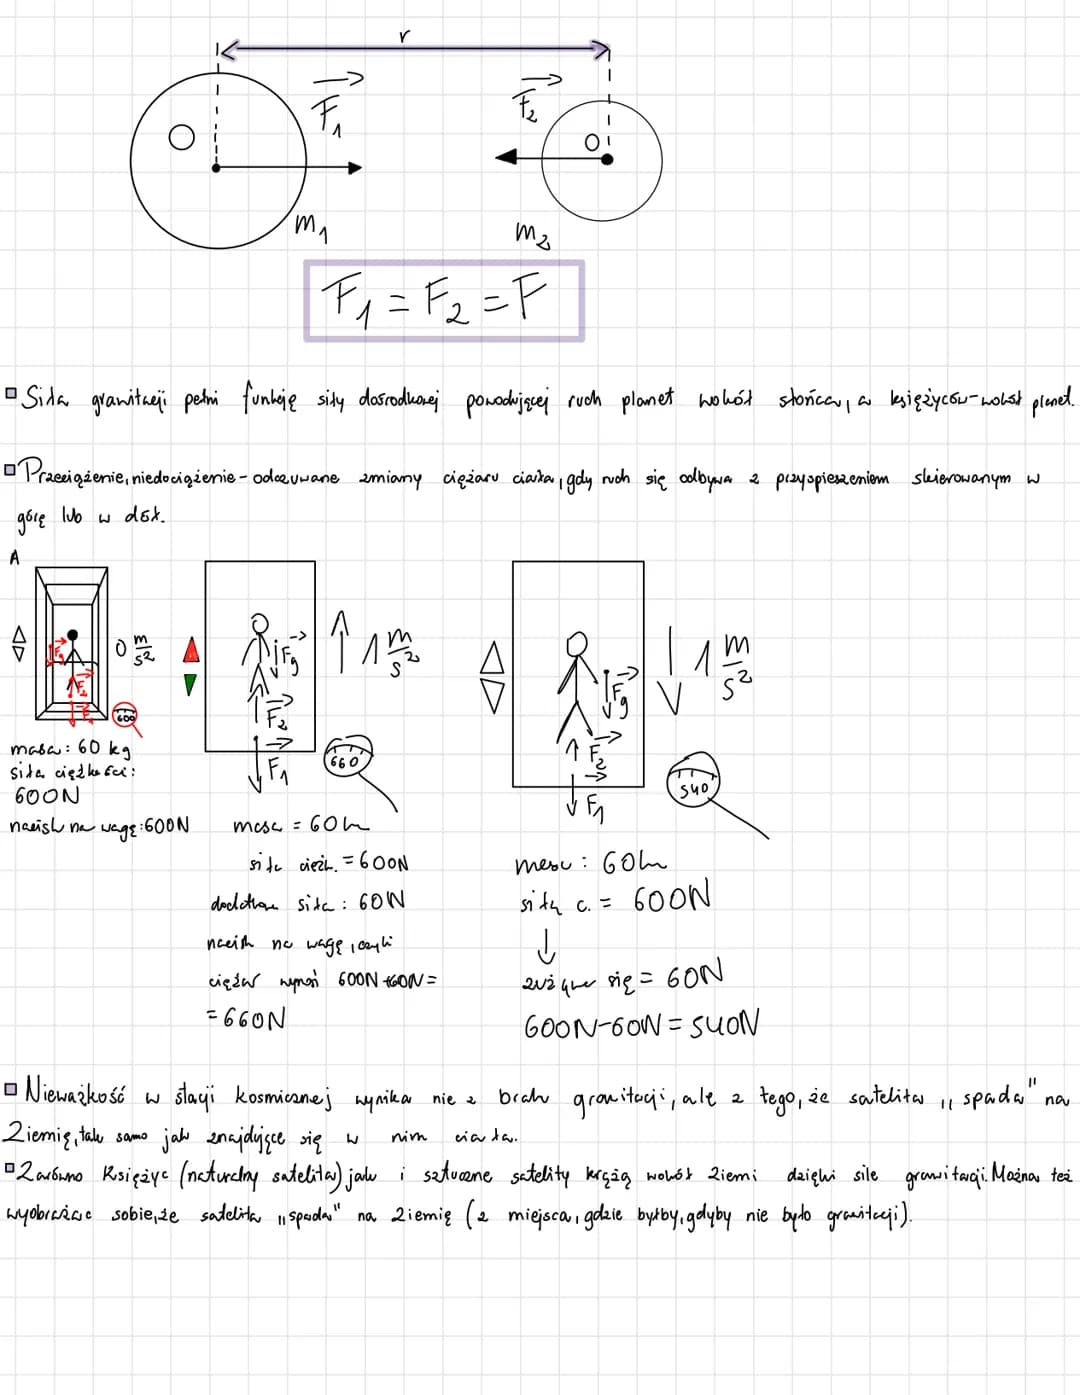 r
F₁
F₂
O
O
m₁
m₂
F₁ = F₂ = F
Siła grawitacji pełni funkcję siły dośrodkowej powodującej ruch planet wokół słońca, a księżyców-wokół planet.
Przeciążenie, niedociążenie - odczuwane zmiany ciężaru ciała, gdy ruch się odbywa z przyspieszeniem skierowanym w
górę lub w dół.
A
0 m/s²
Fg
F₂
F₁
600
masa: 60 kg
siła ciężkości:
600N
nacisk na wagę: 600N
1 m/s²
Fg
F₂
F₁
660
masa = 60k
siła cięż. = 600N
dodatkowa siła: 60N
nacisk na wagę, czyli
ciężar wynosi 600N+60N=
=660N
1 m/s²
Fg
F₂
F₁
540
masa: 60k
siła c. = 600N
↓
= 60N
600N-60N = 540N
Nieważkość w stacji kosmicznej wynika nie z braku grawitacji, ale z tego, że satelita „spada" na
Ziemię, tak samo jak znajdujące się w nim ciała.
Zarówno Księżyc (naturalny satelita) jak i sztuczne satelity krążą wokół Ziemi dzięki sile grawitacji. Można też
wyobrażać sobie, że satelita „spada" na Ziemię (z miejsca, gdzie byłby, gdyby nie było grawitacji).